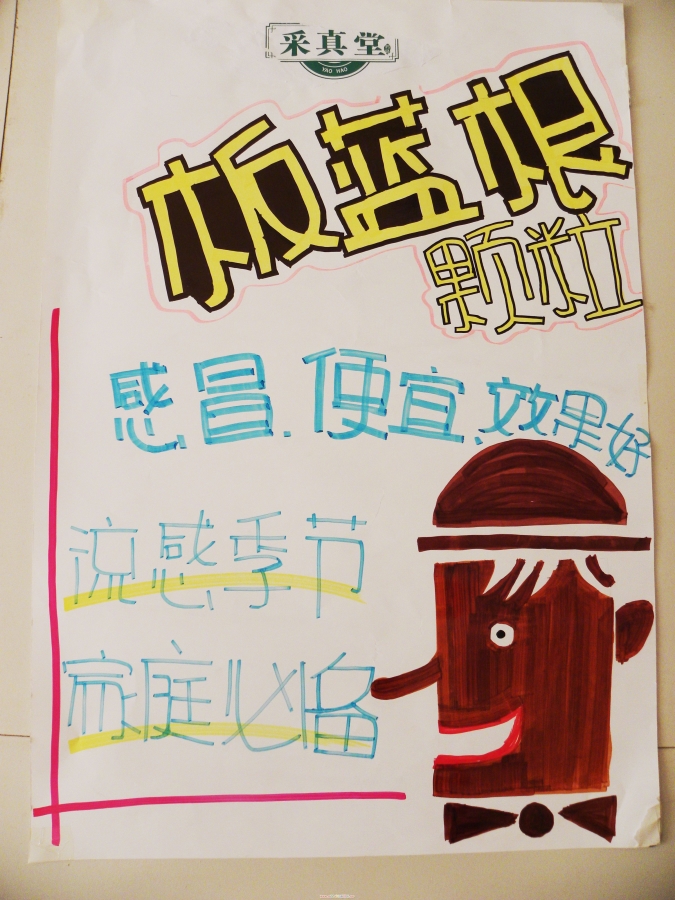 采真堂
YAO HAO
板蓝根
颗粒
感冒、便宜、效果好
流感季节
家庭必备